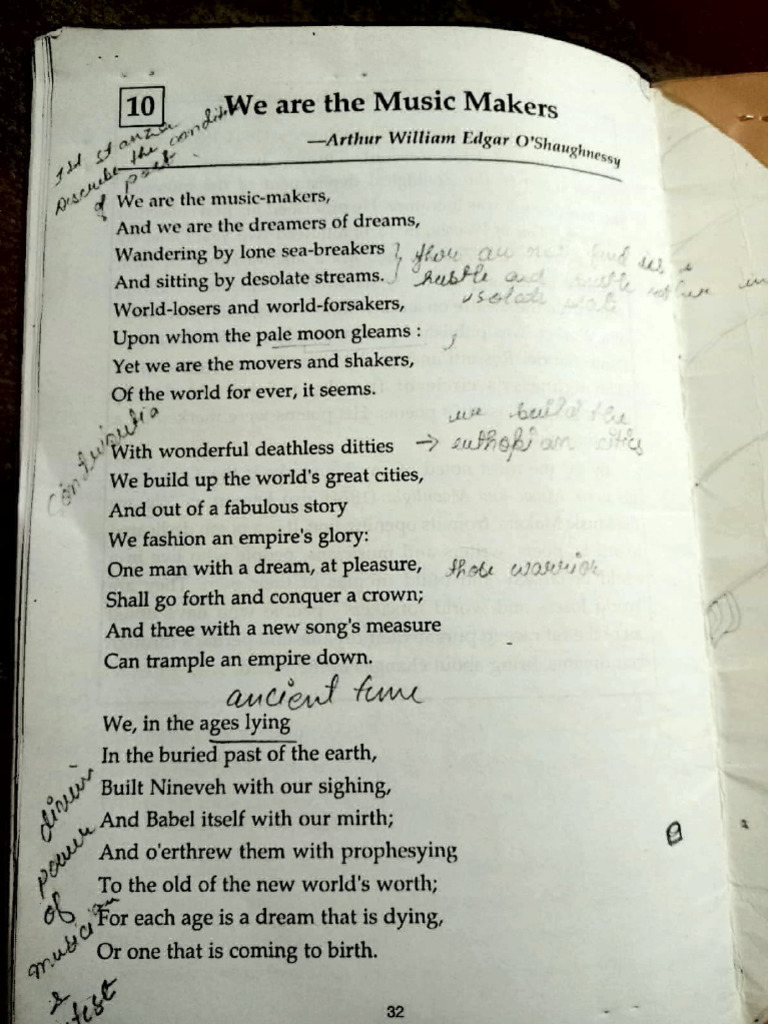 10 We are the Music Makers
—Arthur William Edgar O'Shaughnessy
1st stanza
Describe the
of poet
We are the music-makers,
And we are the dreamers of dreams,
Wandering by lone sea-breakers
And sitting by desolate streams.
World-losers and world-forsakers,
Upon whom the pale moon gleams :
Yet we are the movers and shakers,
Of the world for ever, it seems.
we build the
With wonderful deathless ditties → euthopian cities
We build up the world's great cities,
And out of a fabulous story
We fashion an empire's glory:
One man with a dream, at pleasure, those warrior
Shall go forth and conquer a crown;
And three with a new song's measure
Can trample an empire down.
ancient time
We, in the ages lying
In the buried past of the earth,
Built Nineveh with our sighing,
And Babel itself with our mirth;
And o'erthrew them with prophesying
To the old of the new world's worth;
For each age is a dream that is dying,
Or one that is coming to birth.
power
of
32